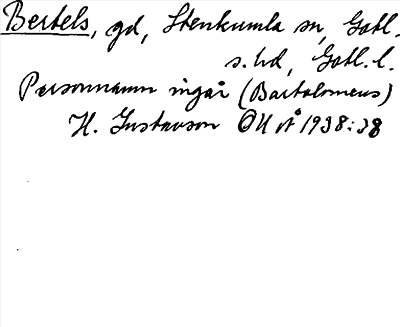 Bertels, gd, Stenkumla sn, Gotl.
s. hd, Gotl. l.
Personnamn ingår (Bartolomeus)
H. Gustavson OUÅ 1938:38